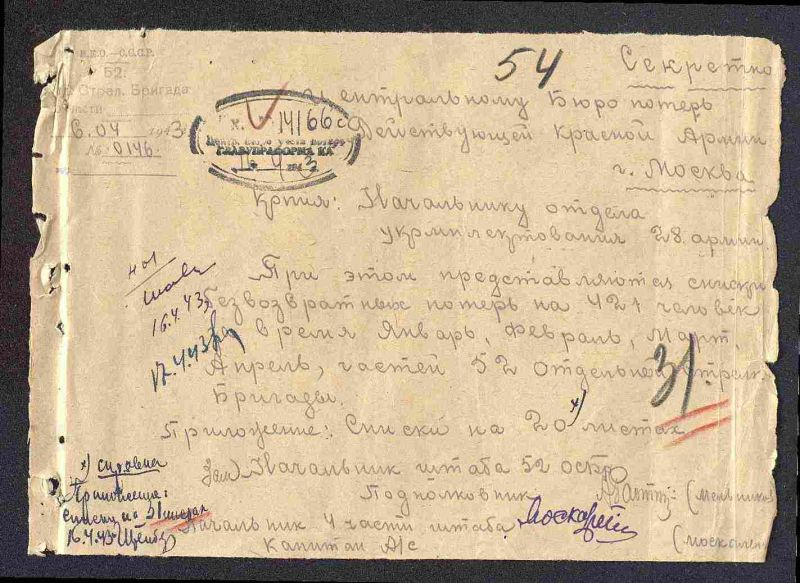 Н.К.О.–С.С.С.Р.
52
Стрел. Бригада
части
6.04 1943
№ 0146
54
Секретно
Центральному Бюро потерь
Действующей Красной Армии
г. Москва
14166 с
Центр. бюро учета потерь
ГЛАВУПРАФОРМА КА
16 4 1943
Копия: Начальнику отдела
укомплектования 28 армии.
При этом представляются списки
безвозвратных потерь на 421 человек
время Январь, Февраль, Март,
Апрель, частей 52 отдельной стрел.
Бригады.
16.4.43
17.4.43
31.
Приложение: Списки на 20 *) листах
Зам) Начальник штаба 52 осбр
Подполковник
Начальник 4 части штаба
Капитан А/с
*) справка
Приложение:
списки на 31 листах
16.4.43